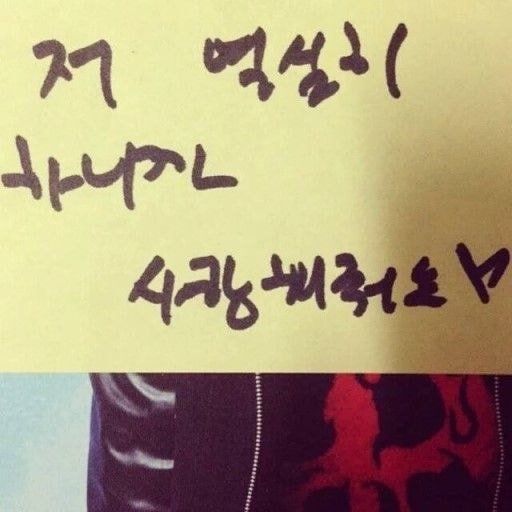 저 열실히
하니까
사랑해줘요♡